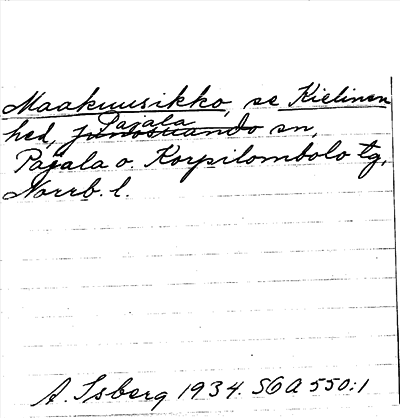 Maakuusikko, se Kielinen
hed, Pajala sn,
Pajala o. Korpilombolo tg,
Norrb. l.
A. Isberg 1934. SOA 550:1